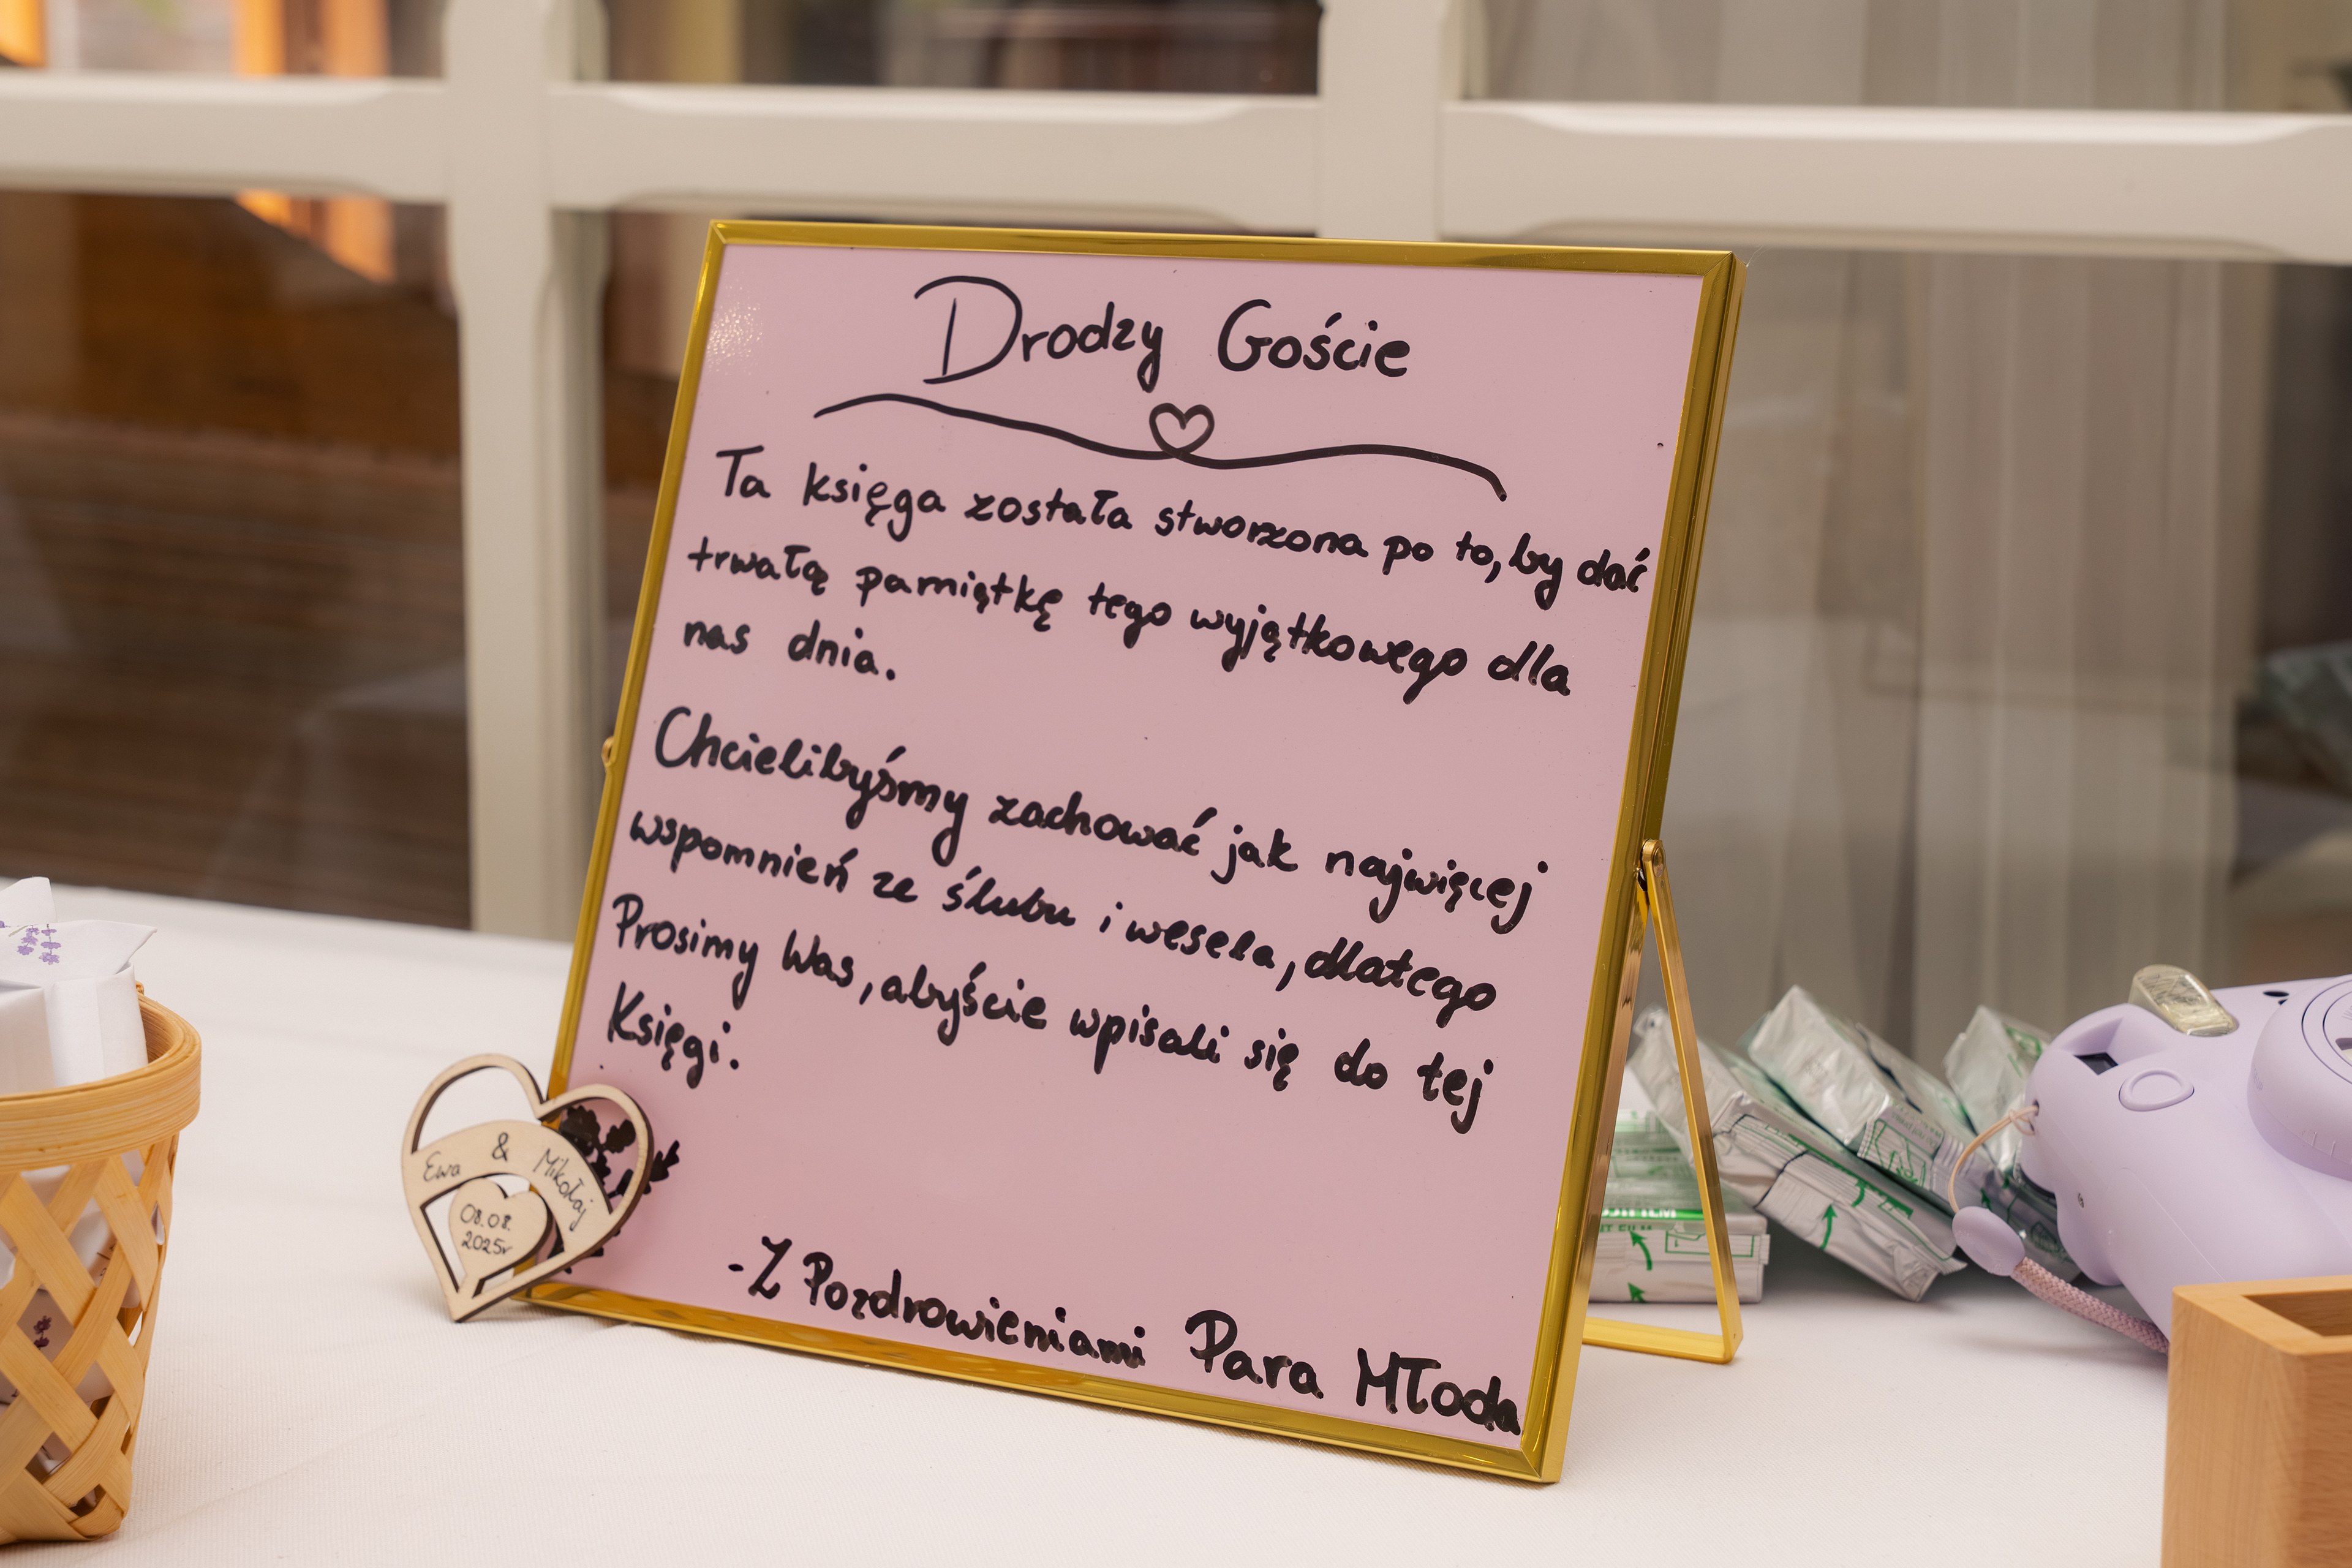 Drodzy Goście
Ta księga została stworzona po to, by dać
trwałą pamiątkę tego wyjątkowego dla
nas dnia.
Chcielibyśmy zachować jak najwięcej
wspomnień ze ślubu i wesela, dlatego
Prosimy Was, abyście wpisali się do tej
Księgi.
-Z Pozdrowieniami Para Młoda
Ewa & Mikołaj
08.08.
2025r